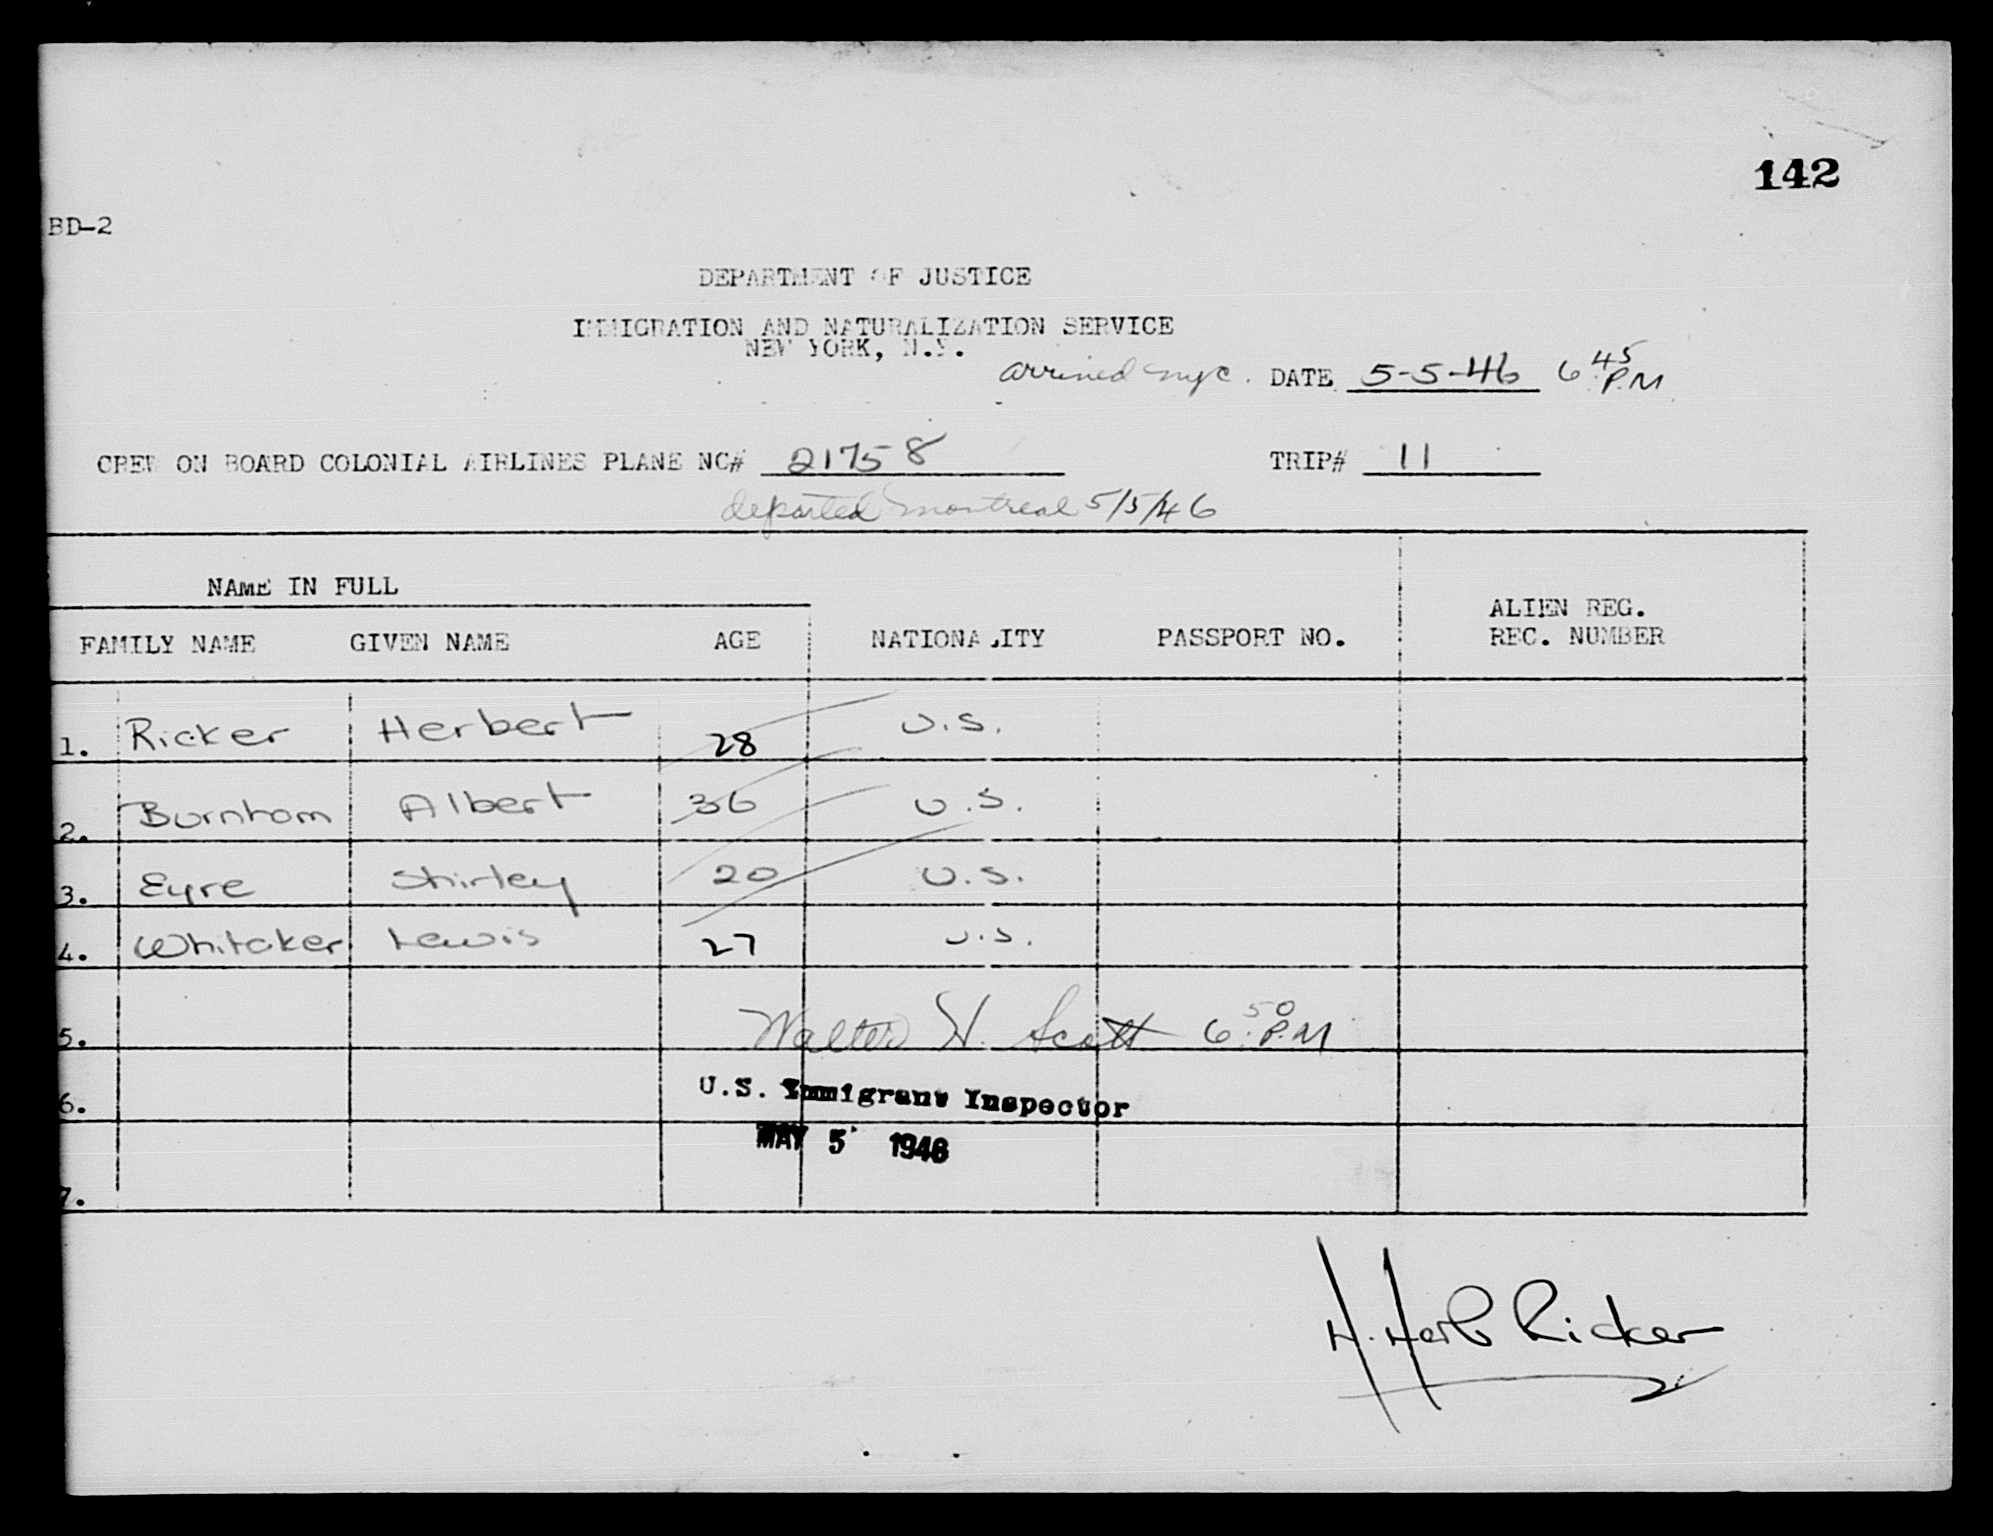 142
BD-2
DEPARTMENT OF JUSTICE
IMMIGRATION AND NATURALIZATION SERVICE
NEW YORK, N.Y.
arrived nyc. DATE 5-5-46 6:45 P.M
CREW ON BOARD COLONIAL AIRLINES PLANE NC# 21758 TRIP# 11
departed montreal 5/5/46
NAME IN FULL
ALIEN REG.
FAMILY NAME GIVEN NAME AGE NATIONALITY PASSPORT NO. REC. NUMBER
1. Ricker Herbert 28 U.S.
2. Burnham Albert 36 U.S.
3. Eyre Shirley 20 U.S.
4. Whitaker Lewis 27 U.S.
5. Walter H. Scott 6:50 P.M
6. U.S. Immigrant Inspector
MAY 5 1946
7.
H. Herb Ricker